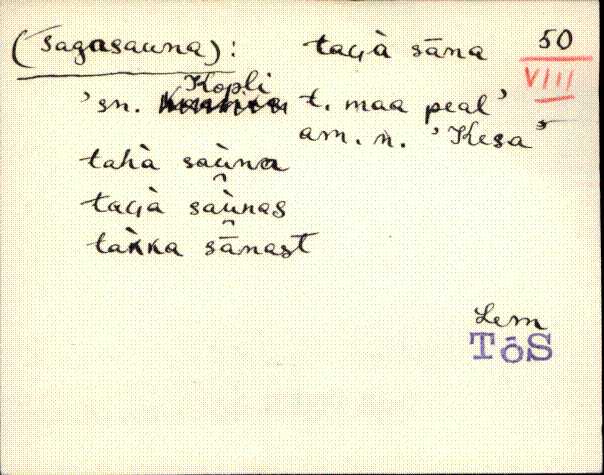 (sagasauna): taɢà sāna 50
VIII
'sn. Kopli t. maa peal'
am. n. 'Kesa'
tahà saùna
taɢà saùnas
takka sānast
Lem
TōS